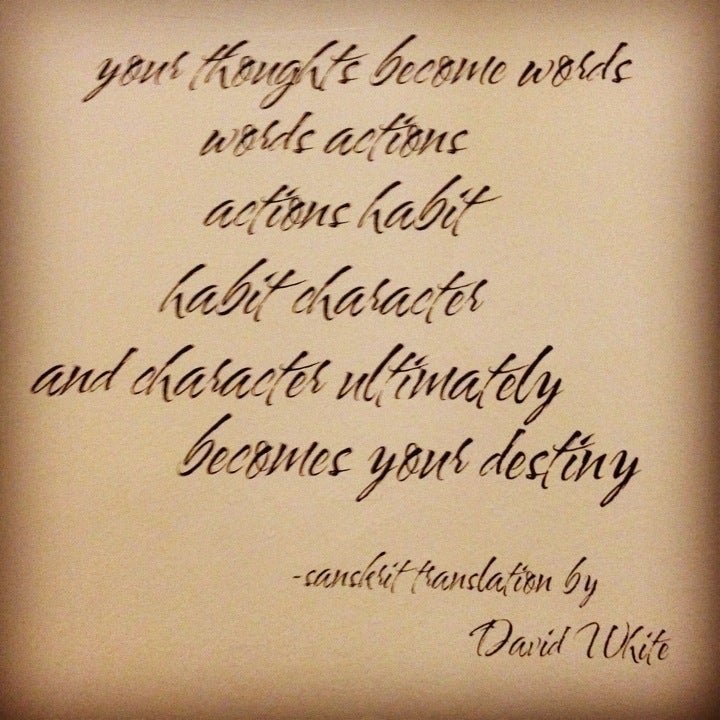 your thoughts become words
words actions
actions habit
habit character
and character ultimately
becomes your destiny
-sanskrit translation by
David White